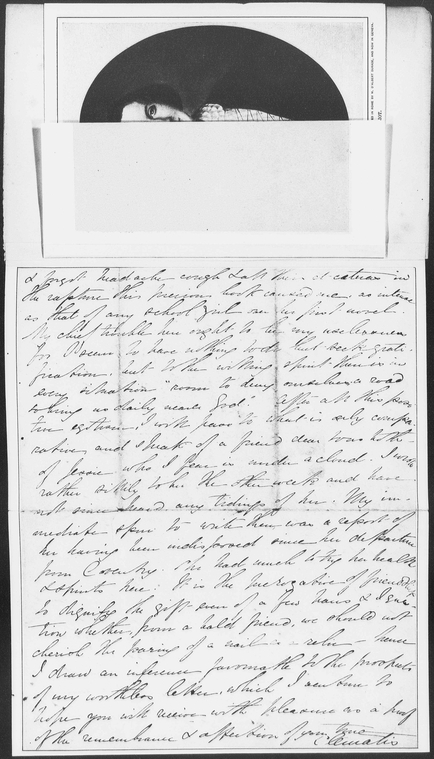 & forgot headache cough & all
the rapture this precious book caused me, as intense
as that of any school girl over her first novel.
My chief trouble here ought to be my uselessness
for I seem to have nothing to do but seek grati-
fication. but to the willing spirit there is in
every situation "room to deny ourselves, a road
to bring us daily nearer God." After all this posi-
tive egotism, I will pass to what is only compa-
rative and speak of a friend dear to us both
of Jessie who I fear is under a cloud. I wrote
rather to her the other week and have
not since heard any tidings of her. My im-
mediate spur to write then was a report of
her having been indisposed since her departure
from Coventry. She had much to try her health
& spirits here. It is the prerogative of friendship
to dignify the gift even of a few hairs & I ques-
tion whether, from a bald friend, we should not
cherish the paring of a nail as a relic - hence
I draw an inference favourable to the prospects
of my worthless letter, which I venture to
hope you will receive with pleasure as a proof
of the remembrance & affection of your true
Clematis
307.